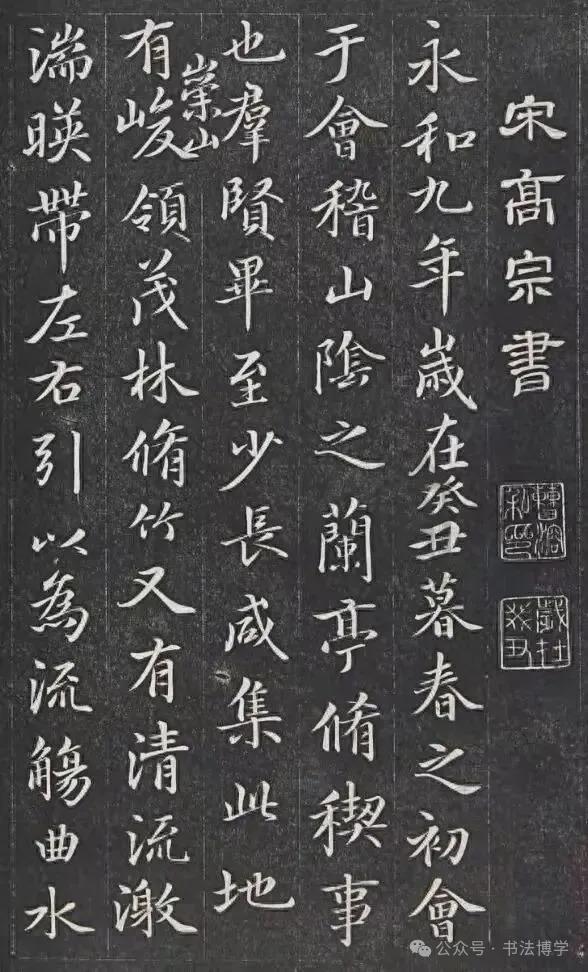 宋髙宗書
曹溶私印
歲在癸丑
永和九年歲在癸丑暮春之初會
于會稽山陰之蘭亭脩稧事
也羣賢畢至少長咸集此地
有崇山峻領茂林脩竹又有清流激
湍暎帶左右引以為流觴曲水
公众号·书法博学